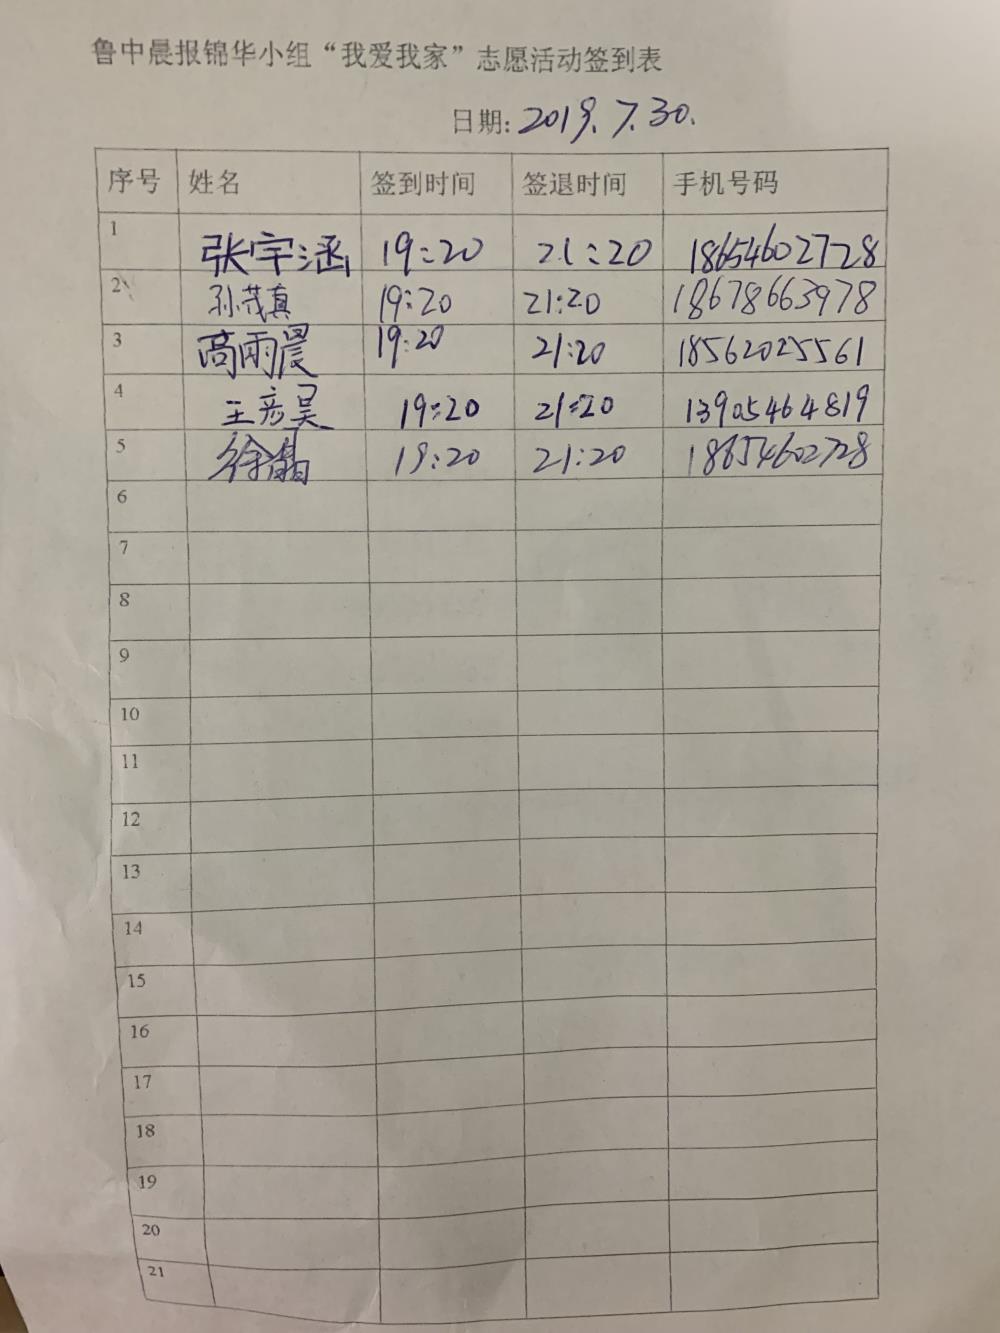 鲁中晨报锦华小组“我爱我家”志愿活动签到表
日期: 2019.7.30.
序号 姓名 签到时间 签退时间 手机号码
1 张宇涵 19:20 21:20 18654602728
2 孙茂真 19:20 21:20 18678663978
3 高雨晨 19:20 21:20 18562025561
4 王彦昊 19:20 21:20 13905464819
5 徐 19:20 21:20 18654602728
6
7
8
9
10
11
12
13
14
15
16
17
18
19
20
21